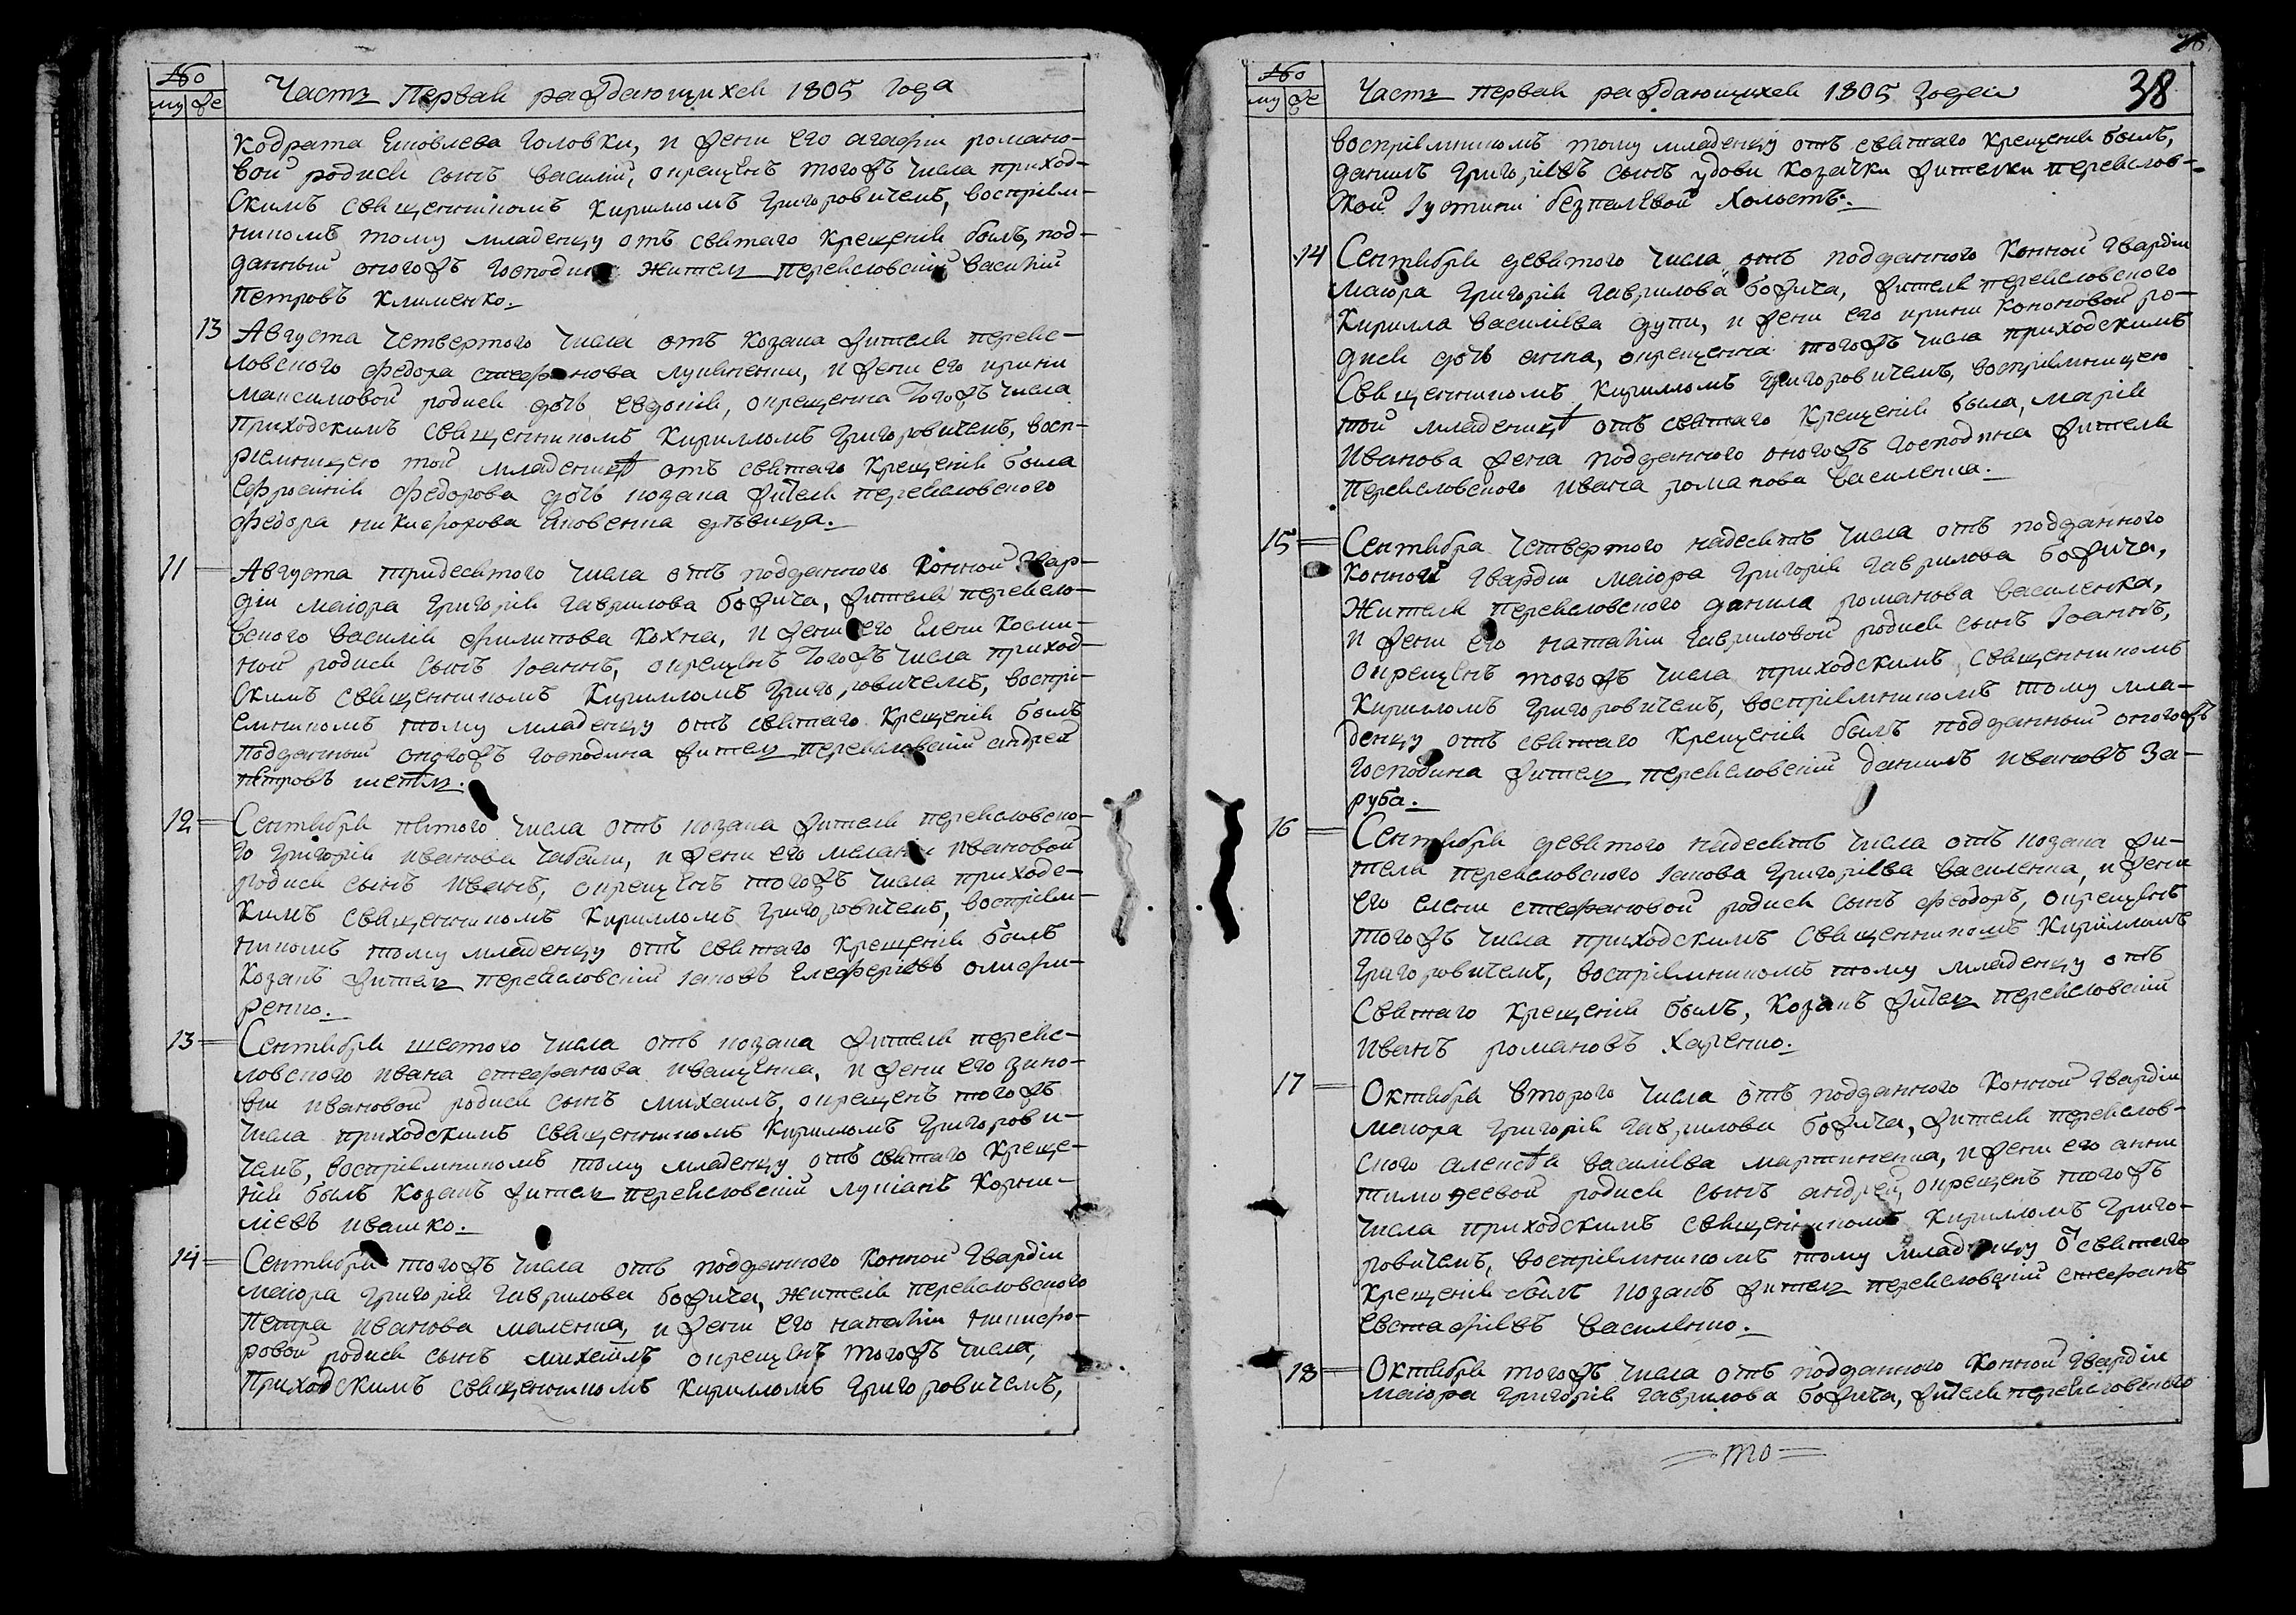 №
му же
Часть Первая раждающихся 1805 года
Кодрата Яковлева Головки, и жени его агафии романо-
вой родися сынъ василий, окрещенъ тогожъ числа приход-
скимъ священникомъ Кириломъ Григоровичемъ, восприем-
никомъ тому младенцу отъ святаго крещения былъ, под-
данный оногожъ господина житель переясловский василий
петровъ клименко.
13 Августа четвертого числа отъ козака жителя перея-
словского федора стефанова лукяненка, и жени его ирини
максимовой родися дочь евдокия, окрещенна тогожъ числа
приходскимъ священникомъ Кириломъ Григоровичемъ, восп-
риемницею той младеницѣ отъ святаго крещения была
Ефросиния федорова дочь козака жителя переясловского
федора никифорова яковенка дѣвица.
11 Августа тридесятого числа отъ подданного конной гвар-
дии маиора григория гаврилова божича, жителя переясло-
вского василия филипова кохна, и жени его Елени косми-
ной родися сынъ Iоаннъ, окрещенъ тогожъ числа приход-
скимъ священникомъ Кириломъ Григоровичемъ, воспри-
емникомъ тому младенцу отъ святаго крещения былъ
подданный оногожъ господина житель переясловский андрей
петровъ
12 Сентября пятого числа отъ козака жителя переясловско-
го григория иванова чабали, и жени его мелании ивановой
родися сынъ иванъ, окрещенъ тогожъ числа приходс-
кимъ священникомъ Кириломъ Григоровичемъ, восприем-
никомъ тому младенцу отъ святаго крещения былъ
козакъ житель переясловский Iаковъ Елеферiевъ олифи-
ренко.
13 Сентября шестого числа отъ козака жителя перея-
словского ивана стефанова иващенка, и жени его зино-
вии ивановой родися сынъ михаилъ, окрещенъ тогожъ
числа приходскимъ священникомъ Кириломъ Григорови-
чемъ, восприемникомъ тому младенцу отъ святаго креще-
ния былъ козакъ житель переясловский лукианъ корни-
лиевъ ивашко.
14 Сентября тогожъ числа отъ подданного конной гвардии
маиора григория гаврилова божича, жителя переясловского
петра иванова маленка, и жени его наталии никифо-
ровой родися сынъ михаилъ окрещенъ тогожъ числа,
приходскимъ священникомъ кириломъ Григоровичемъ,
38
№
му же
Часть первая раждающихся 1805 года
восприемникомъ тому младенцу отъ святаго крещения былъ,
данилъ григориевъ сынъ удови козачки жителки переяслов-
ской Iустини безпалевой холостъ.
14 Сентября девятого числа отъ подданного конной гвардии
маиора григория гаврилова божича, жителя переясловского
Кирилла василиева дупи, и жени его ирини кононовой ро-
дися дочь анна, окрещенна тогожъ числа приходскимъ
священникомъ Кириломъ Григоровичемъ, восприемницею
той младеницѣ отъ святаго крещения была, мария
иванова жена подданного оногожъ господина жителя
переясловского ивана романова василенка.
15 Сентября четвертого надесять числа отъ подданного
конной гвардии маиора григория гаврилова божича,
жителя переясловского данила романова василенка,
и жени его наталии гавриловой родися сынъ Iоаннъ,
окрещенъ тогожъ числа приходскимъ священникомъ
Кириломъ Григоровичемъ, восприемникомъ тому мла-
денцу отъ святаго крещения былъ подданный оногожъ
господина житель переясловский данилъ ивановъ за-
руба.
16 Сентября девятого надесять числа отъ козака жи-
теля переясловского Iакова григориева василенка, и жени
его елени стефановой родися сынъ феодоръ, окрещенъ
тогожъ числа приходскимъ священникомъ Кириломъ
Григоровичемъ, восприемникомъ тому младенцу отъ
святаго крещения былъ, козакъ житель переясловский
иванъ романовъ харенко.
17 Октября второго числа отъ подданного конной гвардии
маиора григория гаврилова божича, жителя переяслов-
ского алексѣя василиева мартиненка, и жени его анни
тимофеевой родися сынъ андрей, окрещенъ тогожъ
числа приходскимъ священникомъ Кириломъ Григо-
ровичемъ, восприемникомъ тому младенцу от святаго
крещения былъ козакъ житель переясловский стефанъ
евстафиевъ василенко.
18 Октября тогожъ числа отъ подданного конной гвардии
маиора григория гаврилова божича, жителя переясловского
то